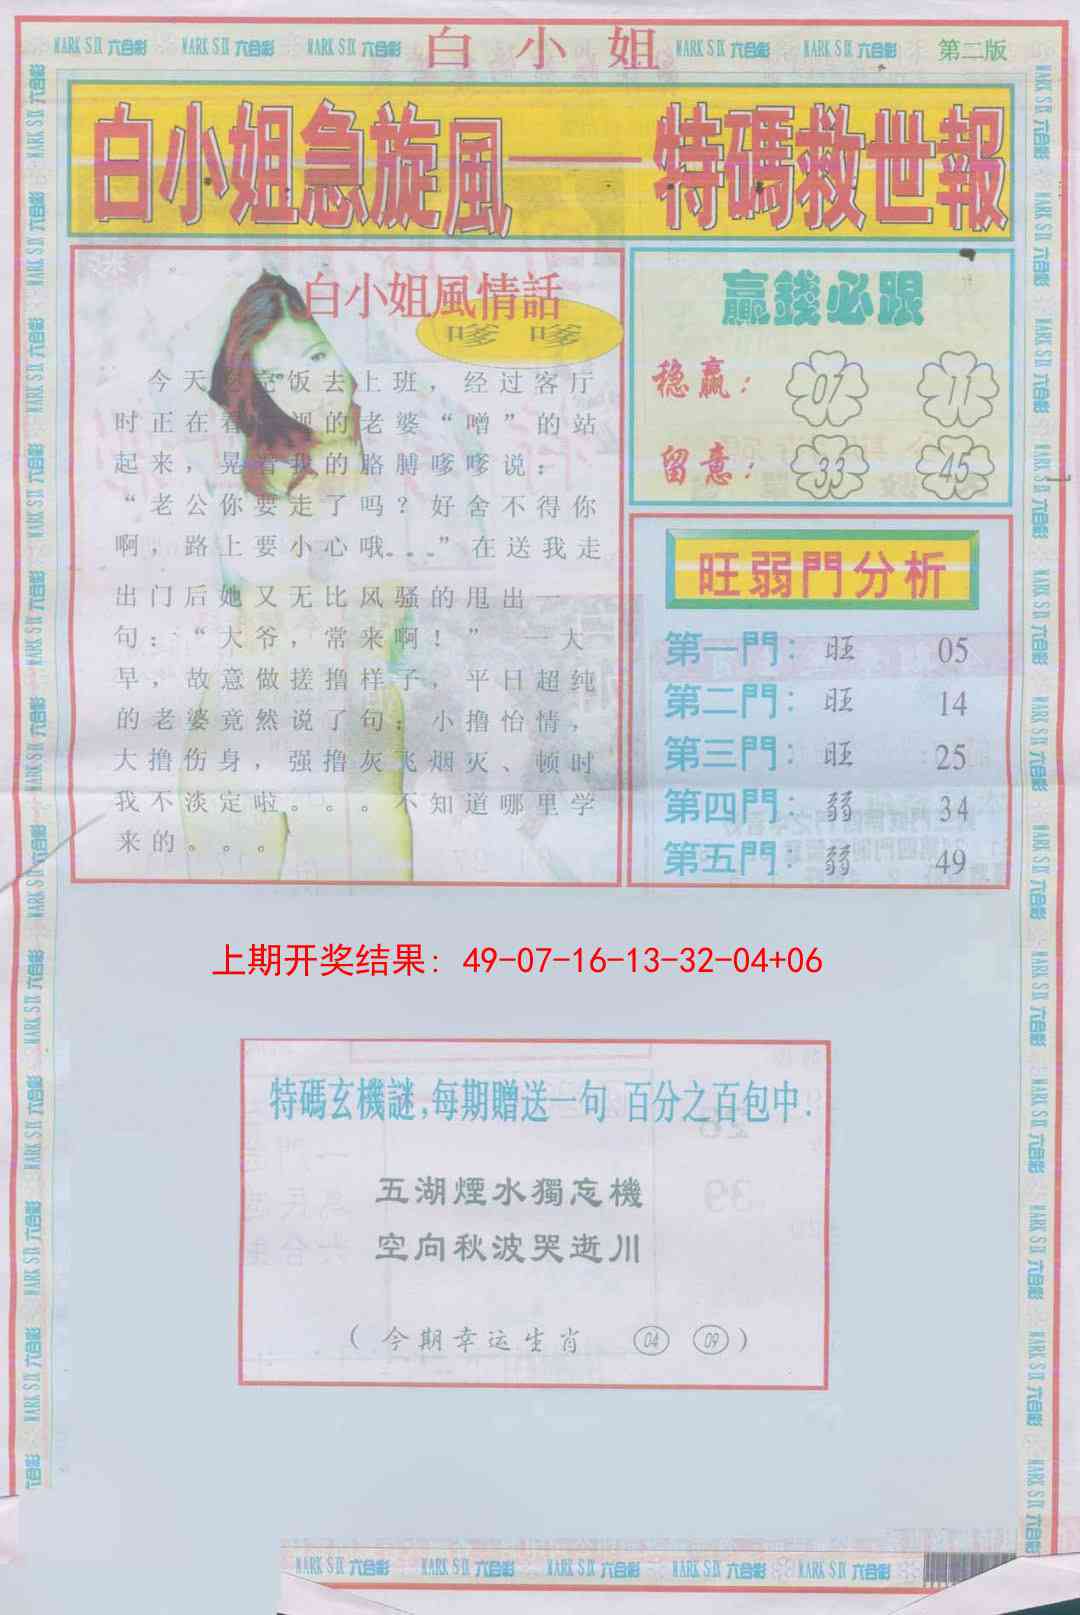 MARK SIX 六合彩 MARK SIX 六合彩 MARK SIX 六合彩 白小姐 MARK SIX 六合彩 MARK SIX 六合彩 第二版
白小姐急旋風——特碼救世報
白小姐風情話
嗲嗲
今天吃完饭去上班，经过客厅
时正在看电视的老婆“噌”的站
起来，晃着我的胳膊嗲嗲说：
“老公你要走了吗？好舍不得你
啊，路上要小心哦。。。”在送我走
出门后她又无比风骚的甩出一
句：“大爷，常来啊！” 一大
早，故意做搓撸样子，平日超纯
的老婆竟然说了句：小撸怡情，
大撸伤身，强撸灰飞烟灭、顿时
我不淡定啦。。。不知道哪里学
来的。。。
贏錢必跟
稳赢： 07 11
留意： 33 45
旺弱門分析
第一門：旺 05
第二門：旺 14
第三門：旺 25
第四門：弱 34
第五門：弱 49
上期开奖结果: 49-07-16-13-32-04+06
特碼玄機謎,每期贈送一句 百分之百包中.
五湖煙水獨忘機
空向秋波哭逝川
（今期幸运生肖 04 09）
MARK SIX 六合彩 MARK SIX 六合彩 MARK SIX 六合彩 MARK SIX 六合彩 MARK SIX 六合彩